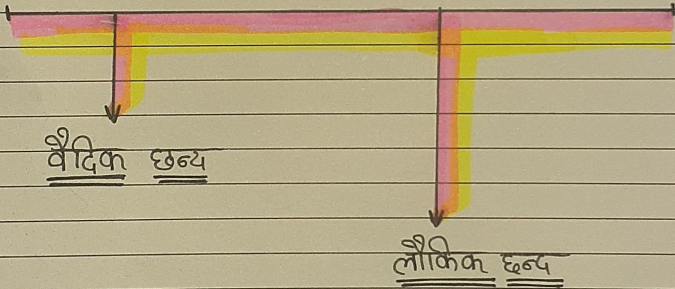 वैदिक छन्द
लौकिक छन्द